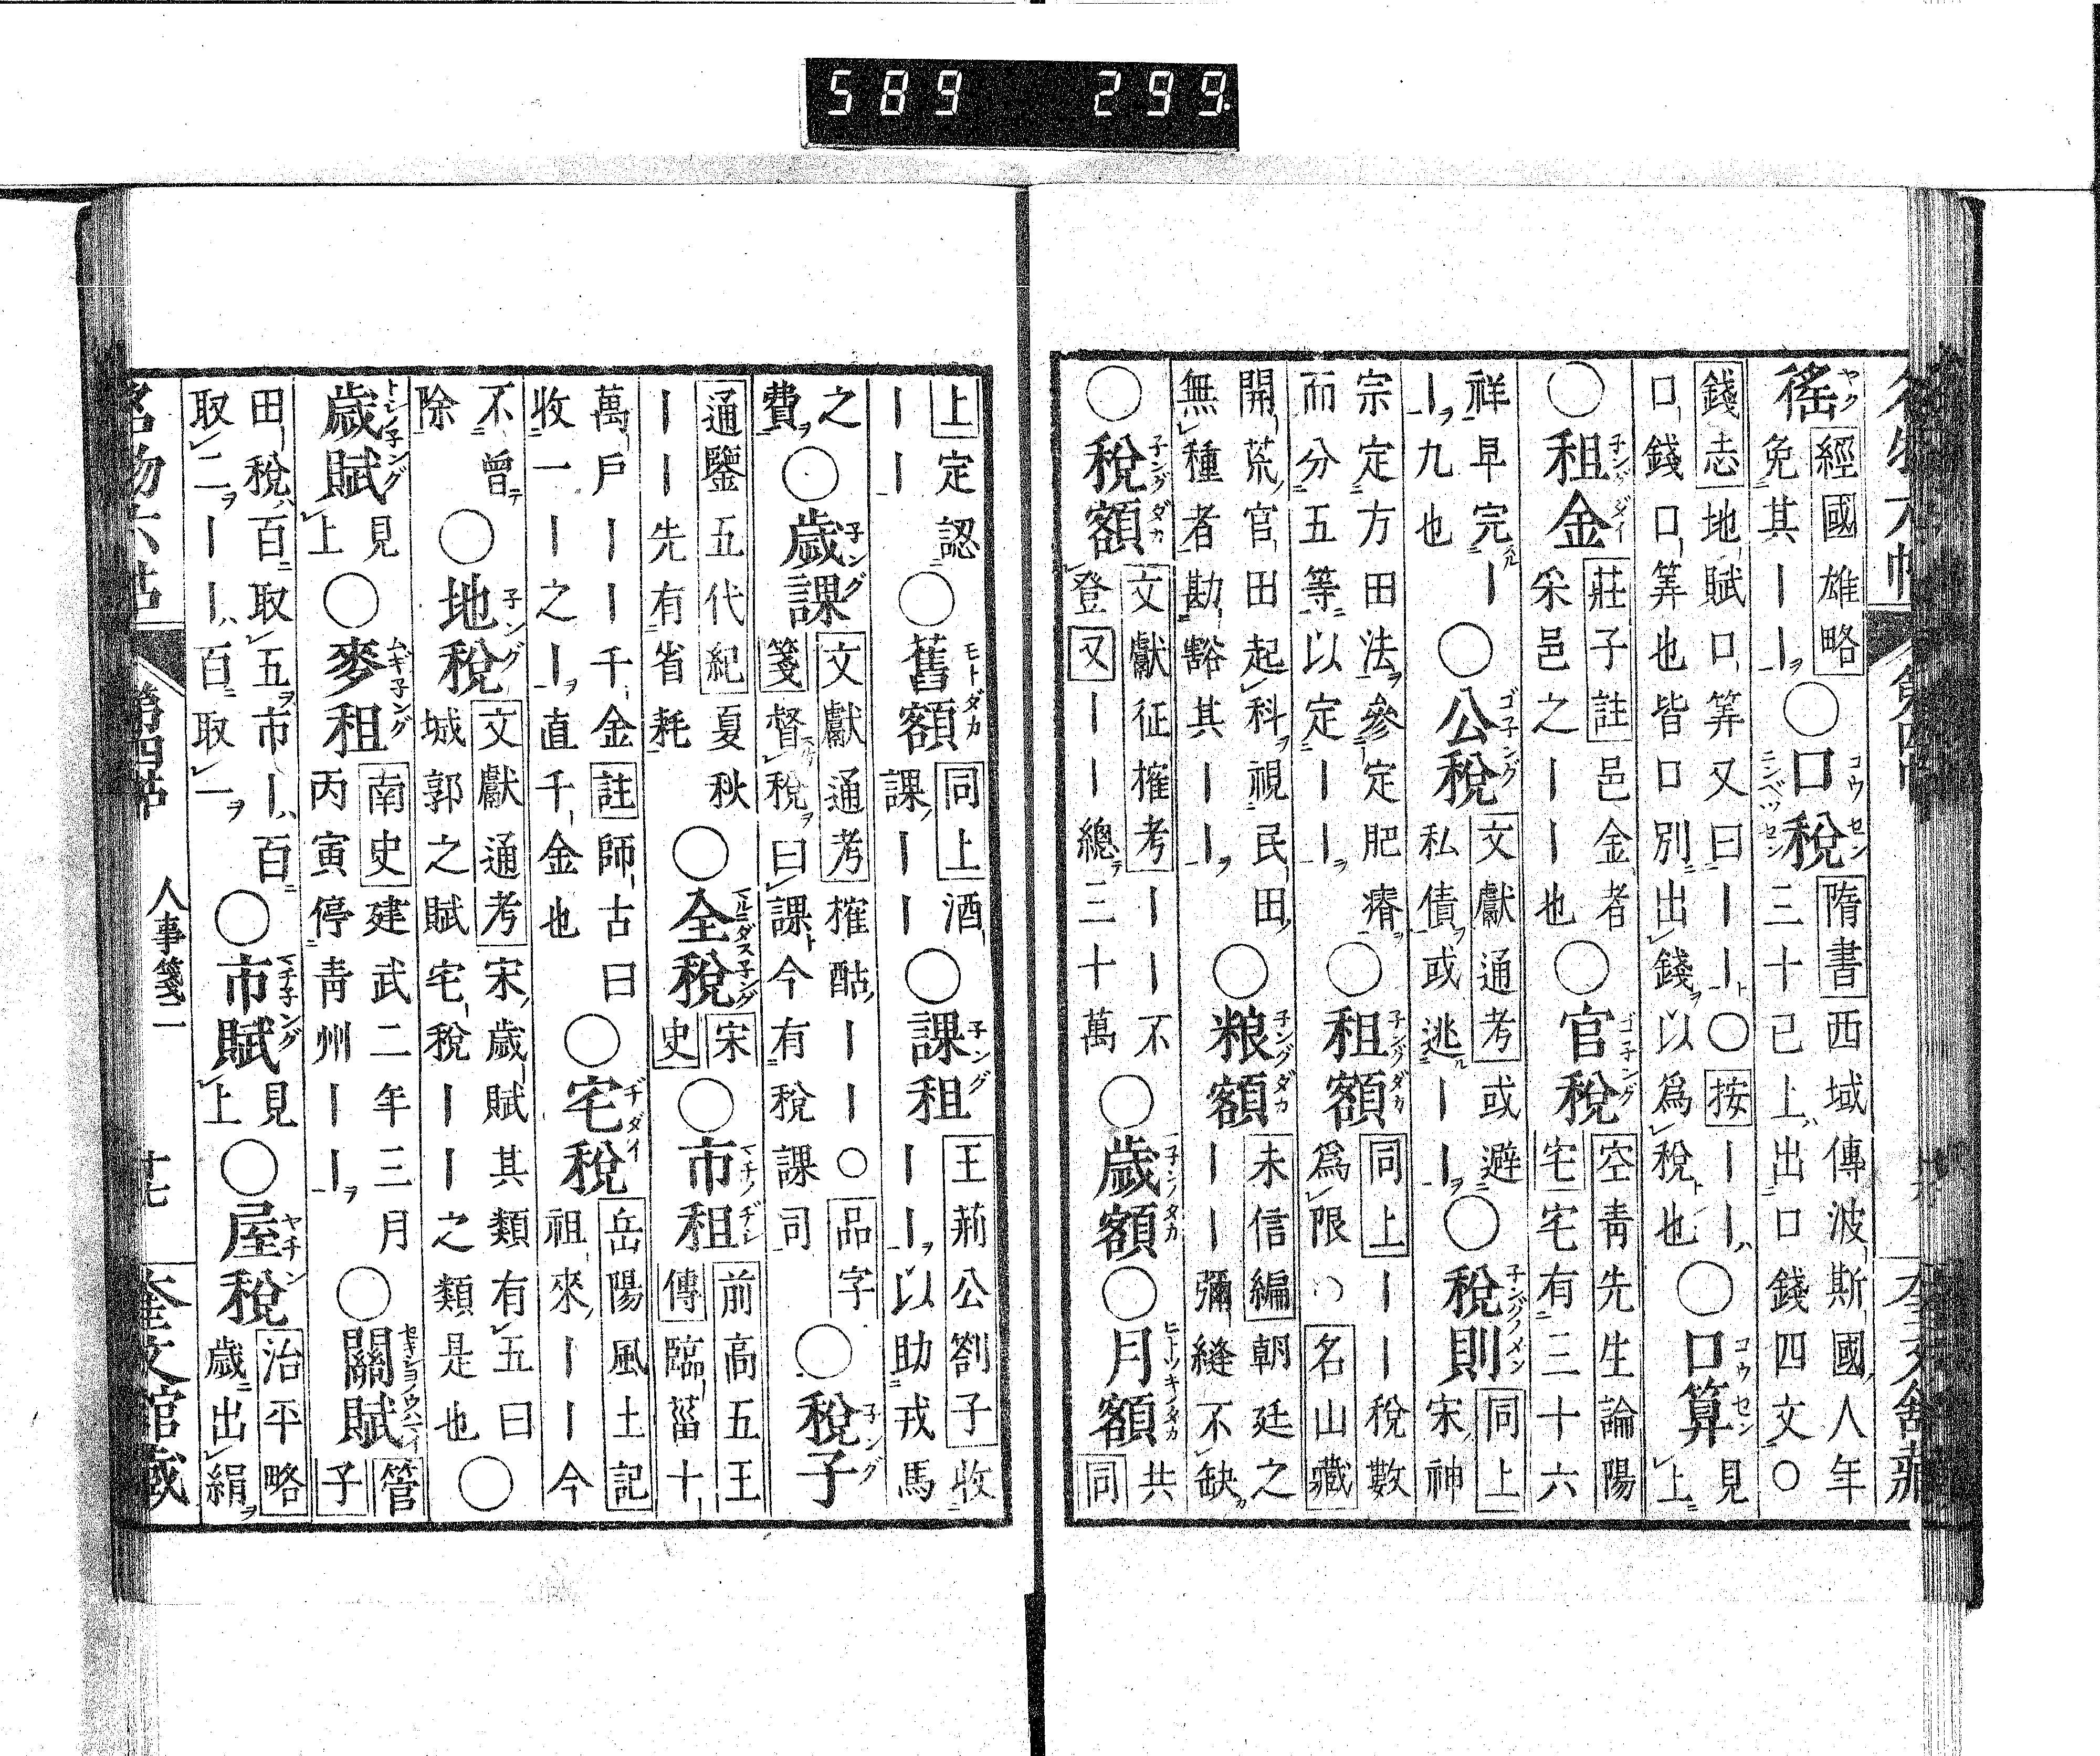 589 299.
徭 經國雄略 免其｜｜ ○口稅 隋書 西域傳波斯國人年三十已上出口錢四文○
錢志 地賦口筭又曰｜｜○按｜｜口錢口筭也皆口別出錢以爲稅也 ○口算 見上
○租金 莊子註 邑金者采邑之｜｜也 ○官稅 空青先生論陽宅 宅有三十六
祥早完｜｜九也 ○公稅 文獻通考 或避私債或逃｜｜ ○稅則 同上 宋神
宗定方田法參定肥瘠而分五等以定｜｜ ○租額 同上 ｜｜稅數爲限○名山藏
開荒官田起科視民田無種者勘豁其｜｜ ○粮額 未信編 朝廷之｜｜彌縫不缺
○稅額 文獻征榷考 ｜｜不登 又 ｜｜總三十萬 ○歲額 ○月額 共同
上 定認｜｜ ○舊額 同上 酒課｜｜ ○課租 王荊公劄子 收｜｜以助戎馬
之費 ○歲課 文獻通考 榷酤｜｜○品字箋 督稅曰課今有稅課司 ○稅子
通鑒五代紀 夏秋｜｜先有省耗 ○全稅 宋史 ○市租 前高五王傳 臨菑十
萬戶｜｜千金 註 師古曰收一｜之｜直千金也 ○宅稅 岳陽風土記 祖來｜｜今
不曾除 ○地稅 文獻通考 宋歲賦其類有五曰城郭之賦宅稅｜｜之類是也 ○
歲賦 見上 ○麥租 南史 建武二年三月丙寅停青州｜｜ ○關賦 管子
田稅百取五市｜百取二｜｜百取一 ○市賦 見上 ○屋稅 治平略 歲出絹
名物六帖 第四帖 人事箋二 廿七 奎文館藏